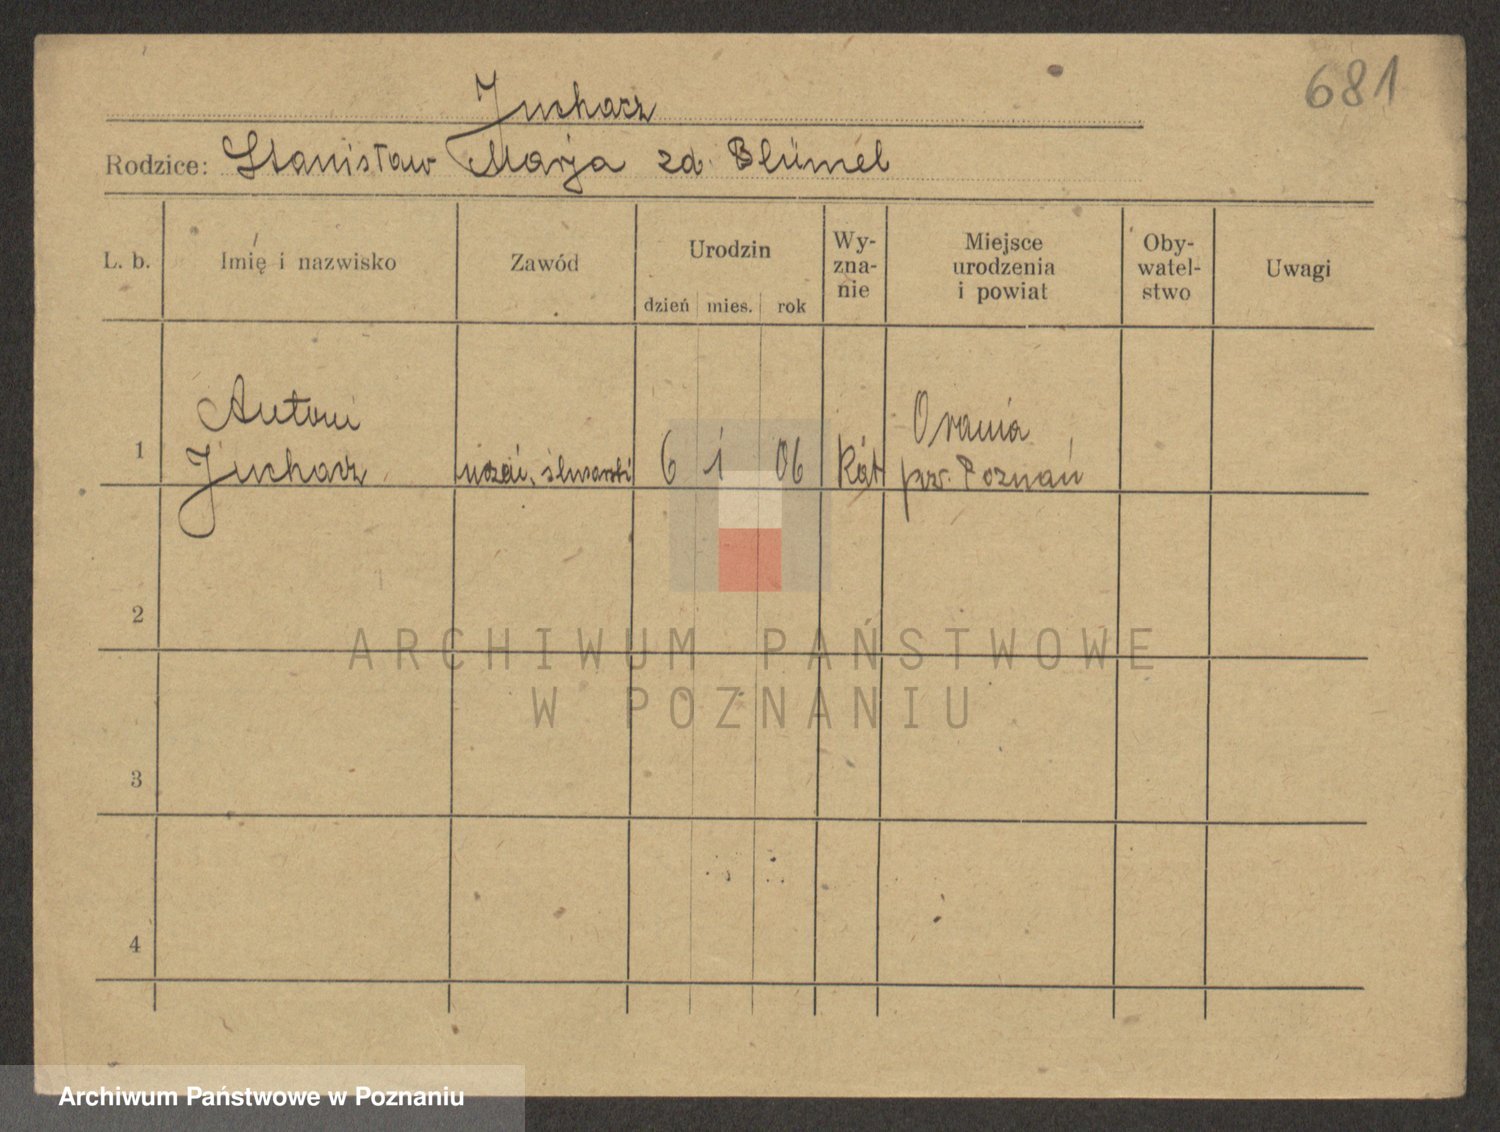 681
Juchacz
Rodzice: Stanisław Marja zd. Blümel
L. b.
Imię i nazwisko
Zawód
Urodzin
dzień mies. rok
Wy-
zna-
nie
Miejsce
urodzenia
i powiat
Oby-
watel-
stwo
Uwagi
1
Antoni
Juchacz
uczeń, ślusarski
6 1 06
Kat
pw. Poznań
2
3
4
ARCHIWUM PAŃSTWOWE
W POZNANIU
Archiwum Państwowe w Poznaniu